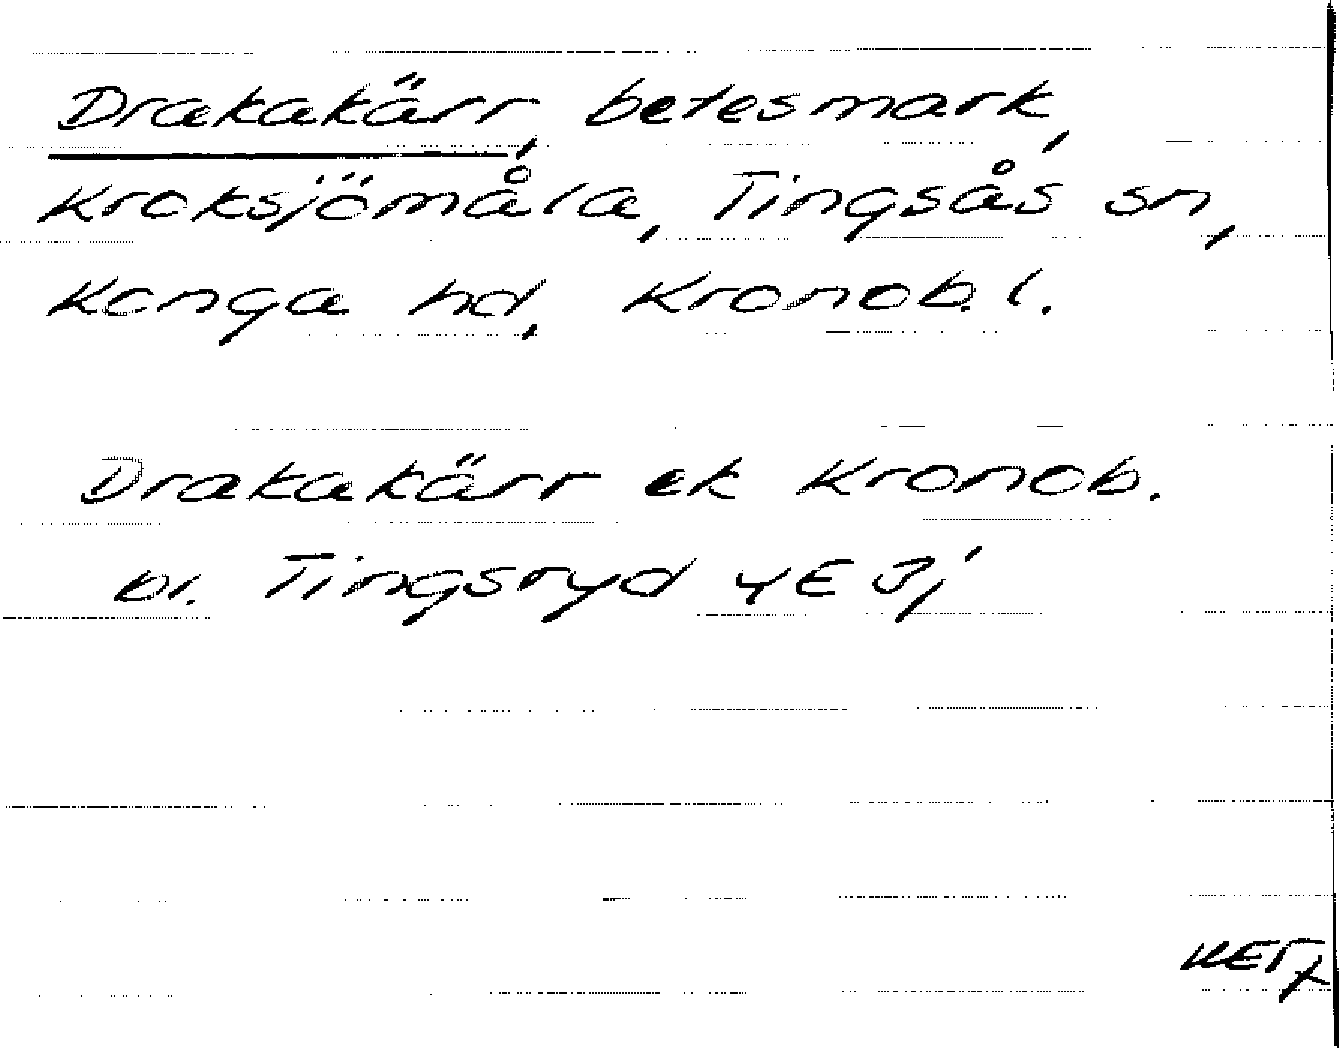 Drakakärr, betesmark,
Kroksjömåla, Tingsås sn,
Konga hd, Kronob. l.
Drakakärr ek Kronob.
bl. Tingsryd 4E 3j